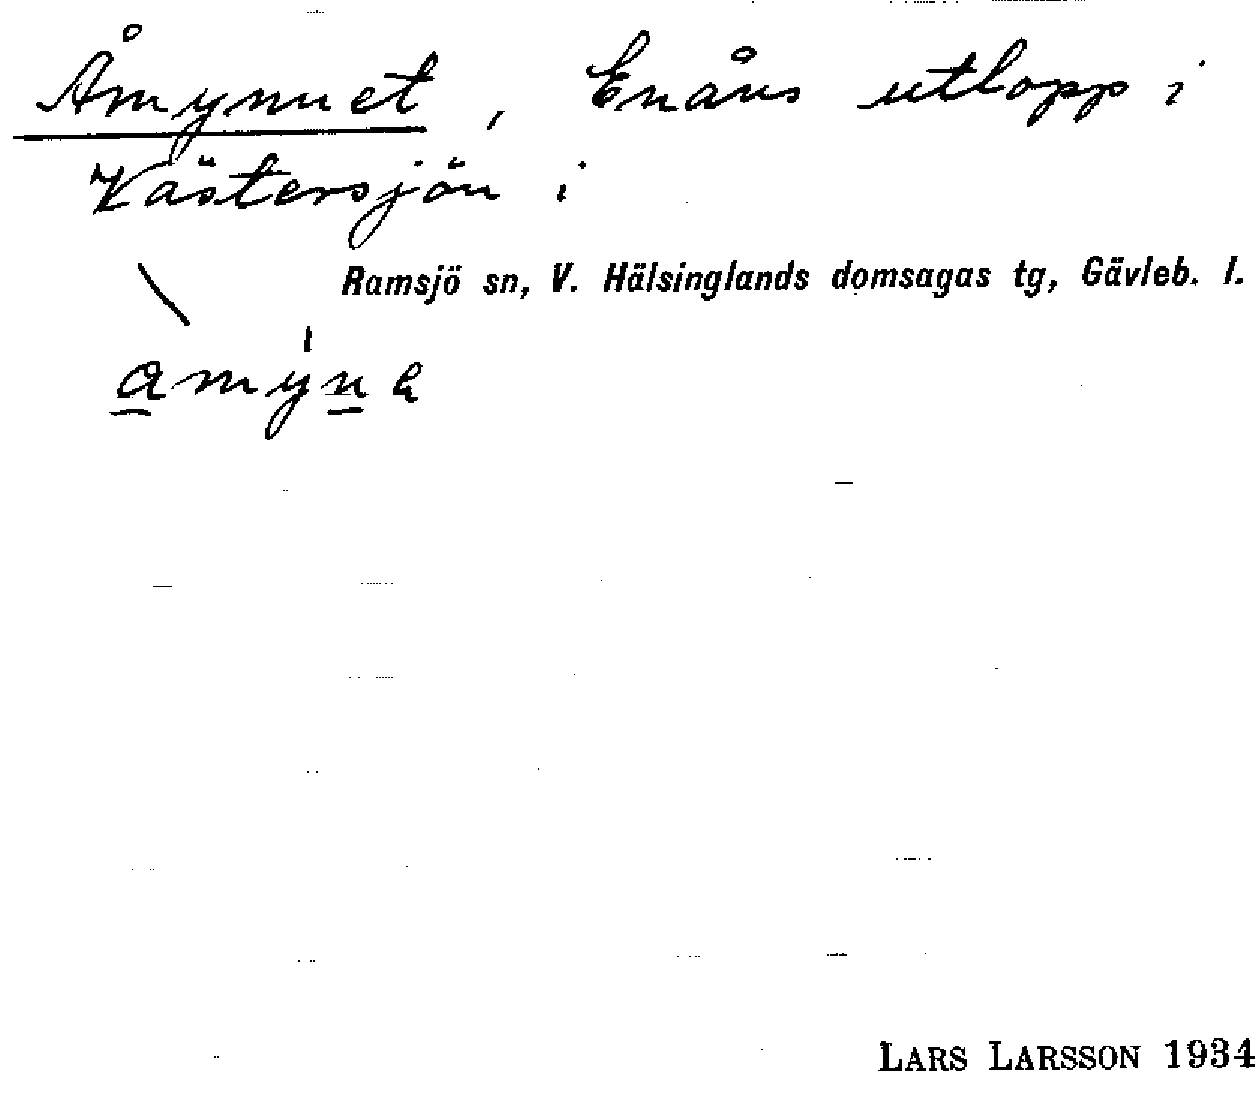 Åmynnet, Enåns utlopp i
Västersjön i
Ramsjö sn, V. Hälsinglands domsagas tg, Gävleb. l.
LARS LARSSON 1934